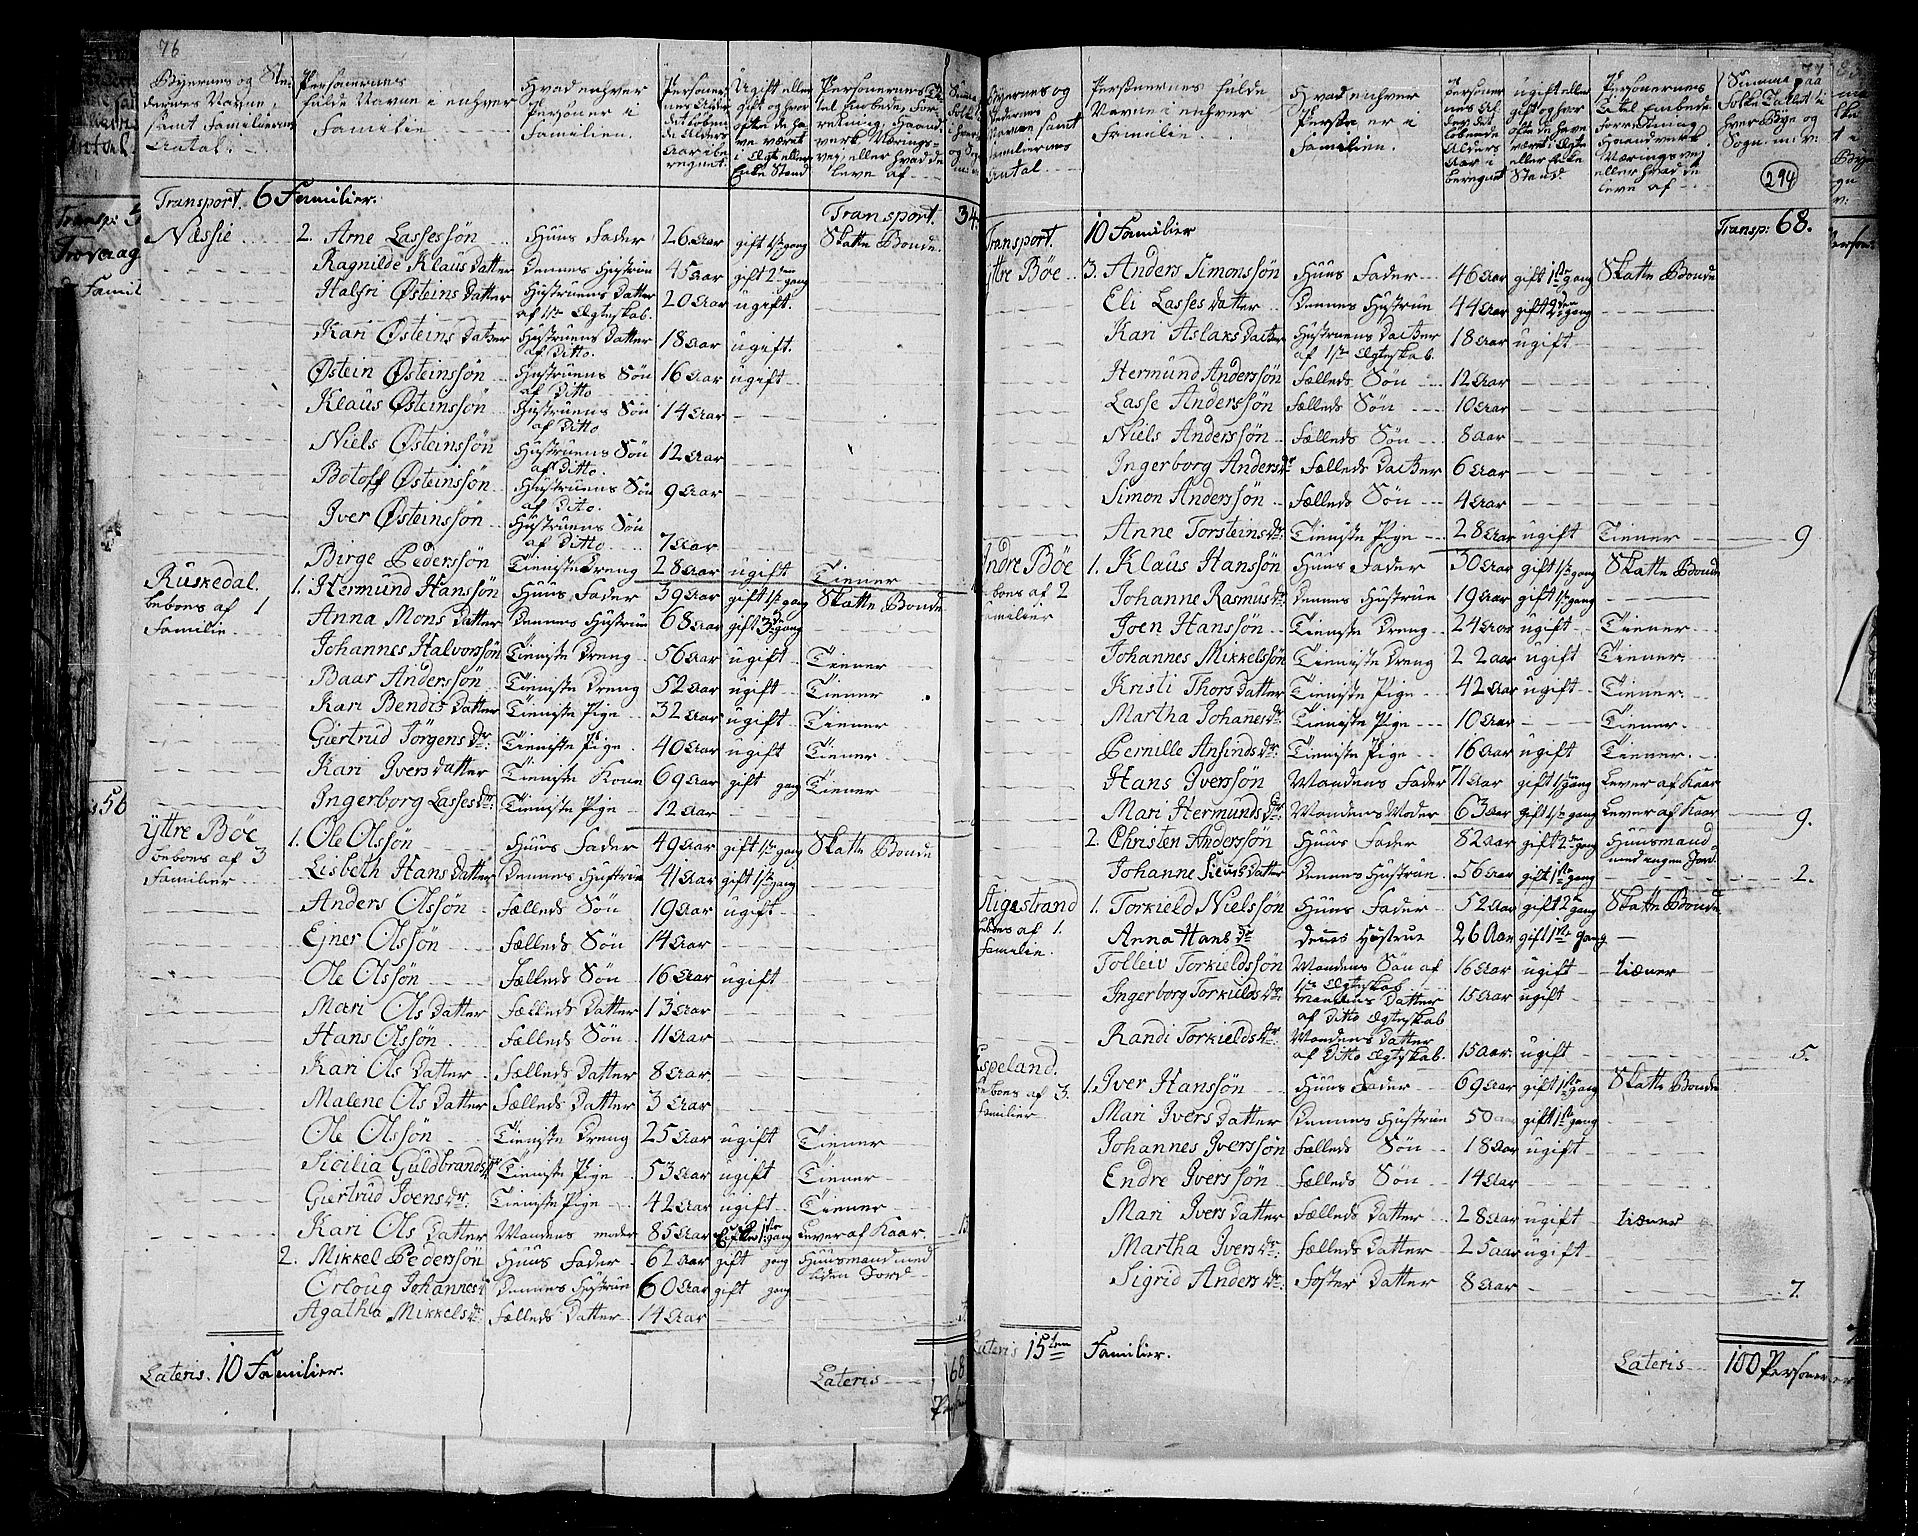 76
Byernes og Ste-
dernes Navne,
samt Familiernes
Antal.
Personernes
fulde Navne i enhver
Familie
Hvad enhver
Person er i
Familien.
Transport. 6 Familier. Transport. 34.
Næssie 2. Arne Lassessøn Huus Fader 26 Aar gift 1ste gang Skatte Bonde
Ragnilde Klaus datter Dennes Hustrue 45 Aar gift 2den gang
Halfri Østeins Datter Hustruens Datter af 1ste Ægteskab. 20 Aar ugift
Kari Østeins Datter Hustruens Datter af Ditto. 18 Aar ugift.
Østein Østeinssøn Hustruens Søn af Ditto 16 Aar ugift
Klaus Østeinssøn Hustruens Søn af Ditto 14 Aar
Niels Østeinssøn Hustruens Søn af Ditto. 12 Aar
Botolf Østeinssøn Hustruens Søn af Ditto. 9 Aar
Iver Østeinssøn Hustruens Søn af Ditto 7 Aar
Birge Pederssøn Tieniste Dreng 28 Aar ugift Tiener
Ruskedal. 1. Hermund Hanssøn Huus Fader 39 Aar gift 1ste gang Skatte Bonde
beboes af 1 Anna Mons Datter Dennes Hustrue 68 Aar gift 3de gang
Familie Johannes Halvorssøn Tieniste Dreng 56 Aar ugift Tiener
Baar Anderssøn Tieniste Dreng 52 Aar ugift Tiener
Kari Bendis Datter Tieniste Pige 32 Aar ugift Tiener
Giertrud Jörgens dr. Tieniste Pige 40 Aar ugift Tiener
Kari Ivers datter Tieniste Kone 69 Aar gift gang Tiener
Ingerborg Lasses dr. Tieniste Pige 12 Aar
Yttre Bøe 1. Ole Olssøn Huus Fader 49 Aar gift 1ste gang Skatte Bonde
beboes af 3 Lisbeth Hans Datter Dennes Hustrue 41 Aar gift 1ste gang
Familier Anders Olssøn Fælleds Søn 19 Aar ugift
Ejner Olssøn Fælleds Søn 14 Aar
Ole Olssøn Fælleds Søn 16 Aar ugift
Mari Ols Datter Fælleds Datter 13 Aar
Hans Olssøn Fælleds Søn 11 Aar
Kari Ols Datter Fælleds Datter 8 Aar
Malene Ols Datter Fælleds Datter 3 Aar
Ole Olssøn Tieniste Dreng 25 Aar ugift Tiener
Sicilia Guldbrands dr Tieniste Pige 53 Aar ugift Tiener
Giertrud Ivens dr. Tieniste Pige 42 Aar ugift Tiener
Kari Ols Datter Mandens moder 85 Aar Enke 1ste gang Lever af Kaar.
2. Mikkel Pederssøn Huus Fader 62 Aar gift gang Huusmand med liden Jord
Orloug Johannes dr Dennes Hustrue 60 Aar gift gang
Agatha Mikkels dr. Fælleds Datter 14 Aar
Lateris. 10 Familier. Lateris 68
Personernes fulde
Navne i enhver
Familie
Hvad enhver
Person er i
Familien.
294
Transport. 10 Familier Transp: 68.
Yttre Bøe 3. Anders Simonssøn Huus Fader 46 Aar gift 1ste gang Skatte Bonde
Eli Lasses datter Dennes Hustrue 44 Aar gift 2den gang
Kari Aslaks Datter Hustruens Datter af 1ste Ægteskab 18 Aar ugift
Hermund Anderssøn Fælleds Søn 12 Aar
Lasse Anderssøn Fælleds Søn 10 Aar
Niels Anderssøn Fælleds Søn 8 Aar
Ingerborg Anders dr Fælleds Datter 6 Aar
Simon Anderssøn Fælleds Søn 4 Aar
Anne Torsteins dr. Tieniste Pige 28 Aar ugift Tiener 9
Indre Bøe 1. Klaus Hanssøn Huus Fader 30 Aar gift 1ste gang Skatte Bonde
beboes af 2 Johanne Rasmus dr. Dennes Hustrue 19 Aar gift 1ste gang
Familier Joen Hanssøn Tieniste Dreng 24 Aar ugift Tiener
Johannes Mikkelssøn Tieniste Dreng 22 Aar ugift Tiener.
Kristi Thors datter Tieniste Pige 42 Aar ugift Tiener.
Martha Johanes dr. Tieniste Pige 10 Aar Tiener.
Pernille Ansinds dr. Tieniste Pige 16 Aar ugift Tiener.
Hans Iverssøn Mandens Fader 71 Aar gift 1ste gang Lever af Kaar
Mari Hermunds dr. Mandens Moder 63 Aar gift 1ste gang Lever af Kaar 9.
2. Christen Anderssøn Huus Fader 82 Aar gift 2den gang Huusmand med ingen Jord.
Johanne Sievers Datter Dennes Hustrue 56 Aar gift 1ste gang 2.
Stigestrand 1. Torkield Nielssøn Huus Fader 52 Aar gift 2de gang Skatte Bonde
beboes af 1. Anna Hans dr Dennes Hustrue 26 Aar gift 1ste gang
Familie. Tolleiv Torkieldssøn Mandens Søn af 1ste Ægteskab 16 Aar ugift tiæner
Ingerborg Torkields dr. Mandens Datter af Ditto Ægteskab 15 Aar ugift
Randi Torkields dr. Mandens Datter af Ditto Ægteskab. 15 Aar ugift 5.
Espeland. 1. Iver Hanssøn Huus Fader 69 Aar gift 1ste gang Skatte Bonde
beboes af 3. Mari Ivers datter Dennes Hustrue 50 Aar gift 1ste gang
Familier Johannes Iverssøn Fælleds Søn 18 Aar ugift
Endre Iverssøn Fælleds Søn 14 Aar
Mari Ivers datter Fælleds Datter 28 Aar ugift tiæner
Martha Ivers dr. Fælleds Datter 25 Aar ugift
Sigrid Anders dr. Foster Datter 8 Aar 7.
Lateris 15ten Familier. Lateris 100 Personer